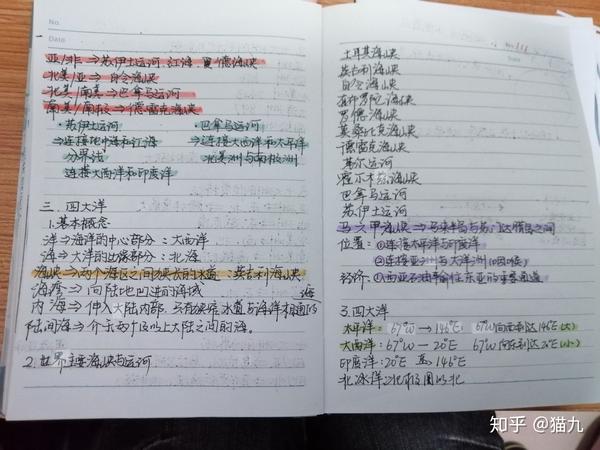 No.
Date
亚/非⇒苏伊士运河、江海、曼德海峡
北美/亚⇒白令海峡
北美/南美⇒巴拿马运河
南美/南极⇒德雷克海峡
·苏伊士运河
⇒连接地中海和江海
分界线
连接大西洋和印度洋
·巴拿马运河
⇒连接大西洋和太平洋
北美洲与南极洲
三. 四大洋
1.基本概念
洋⇒海洋的中心部分:大西洋
海⇒大洋的边缘部分:北海
海峡⇒两个海区之间狭长的水道:英吉利海峡
海湾⇒向陆地凹进的海域
内海⇒伸入大陆内部,只有狭窄水道与海洋相通的海
陆间海⇒介于两个区以上大陆之间的海。
2.世界主要海峡与运河
土耳其海峡
英吉利海峡
白令海峡
直布罗陀海峡
曼德海峡
莫桑比克海峡
德雷克海峡
基尔运河
霍尔木兹海峡
巴拿马运河
苏伊士运河
马六甲海峡⇒马来半岛与苏门达腊岛之间
位置:①连接太平洋与印度洋
②连接亚洲与大洋洲
经济:①西亚石油输往东亚的重要通道
3.四大洋
太平洋:67°W→146°E 67°W向西到达146°E(大)
大西洋:67°W→20°E 67°W向东到达20°E(小)
印度洋:20°E 至 146°E
北冰洋:北极圈以北
知乎 @猫九